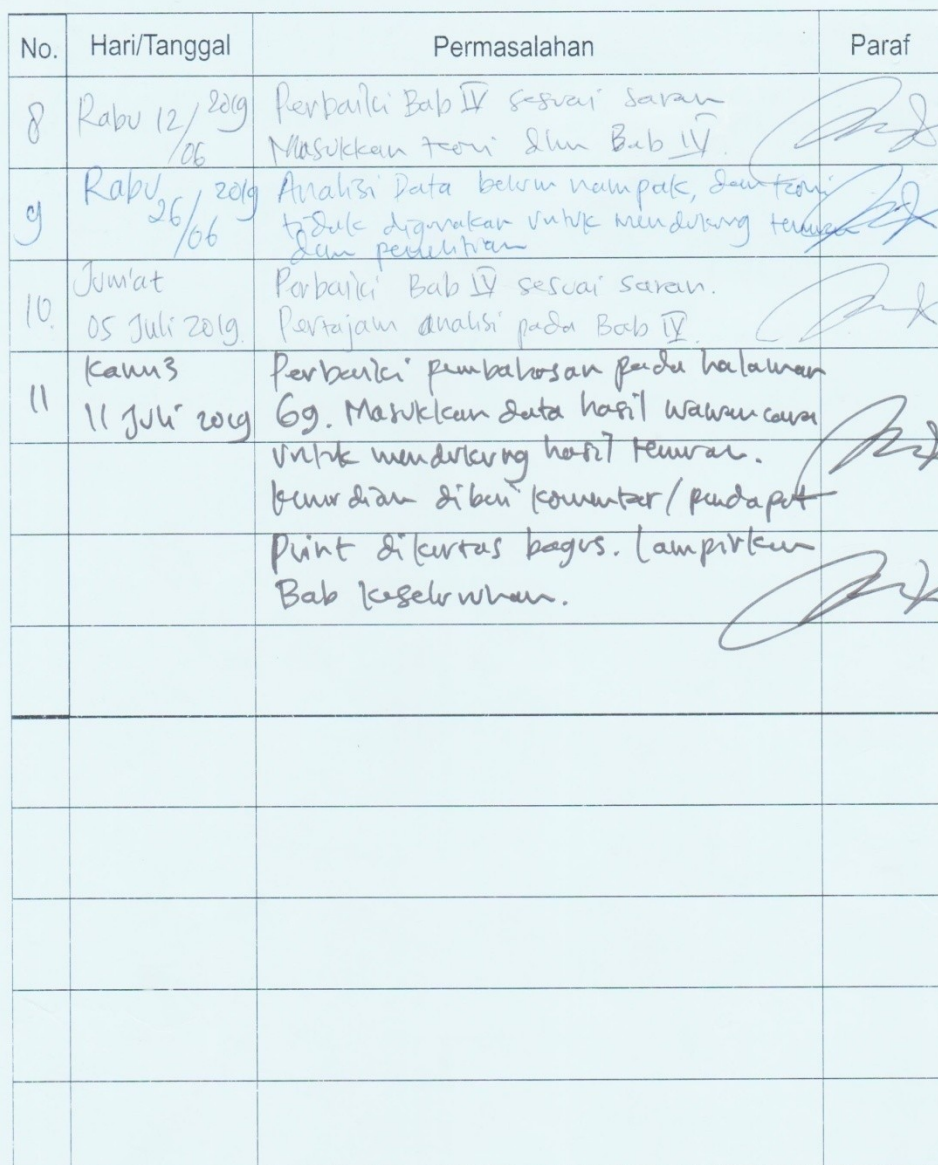 No. Hari/Tanggal Permasalahan Paraf
8 Rabu 12/06 2019 Perbaiki Bab IV sesuai saran
Masukkan teori dlm Bab IV.
9 Rabu 26/06 2019 Analisi Data belum nampak, dan teori
tidak digunakan untuk mendukung temuan
dlm penelitian
10. Jum'at Perbaiki Bab IV sesuai saran.
05 Juli 2019. Pertajam analisi pada Bab IV.
11 Kamis Perbaiki pembahasan pada halaman
11 Juli 2019 69. Masukkan data hasil wawancara
untuk mendukung hasil temuan.
kemudian diberi komentar/pendapat
Print dikertas bagus. Lampirkan
Bab keseluruhan.